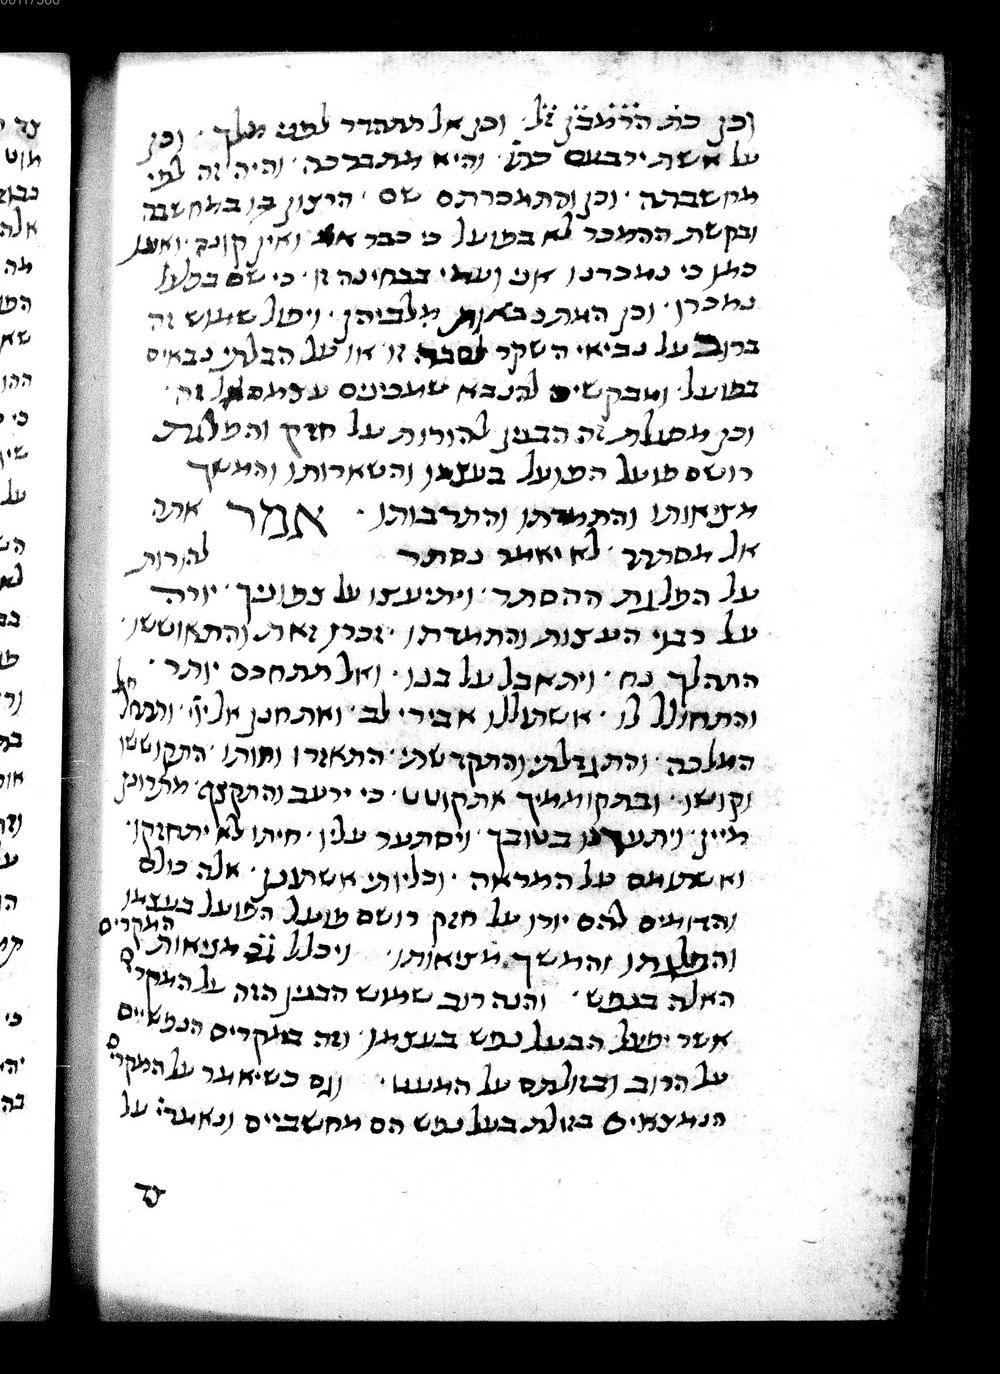 וכן כת' הרמב"ן ז"ל · וכן אל תתהדר לפני מלך · וכן
על אשת ירבעם כת' · והיא מתנכרה · והיה זה לפי
מחשבתה · וכן והתמכרתם שם · הרצון בו במחשבה
ובקשת ההמכר לא בפועל כי כבר אמ' ואין קונה · ואינו
כמו כי נמכרנו אני ועמי בבחינה זו · כי שם בפועל
נמכרו · וכן המתנבאות מלביהן · ויפול שמוש זה
ברוב על נביאי השקר לסבה זו או על הבלתי נבאים
בפועל · ומבקשים להנבא שמכינים עצמם אל זה ·
וכן מפעלת זה הבנין להורות על חזק והפלגת
רושם פועל הפועל בעצמו והשארותו והמשך
מציאותו והתמדתו והתרבותו · אמר אתה
אל מסתתר · לא יאמר נסתר להורות
על הפלגת ההסתר · ויתיעצו על צפוניך · יורה
על רבוי העצות והתמדתו · זכרו זאת והתאוששו ·
התהלך נח · ויתאבל על בנו · ואל תתחכם יותר ·
והתחולל לו · אשתוללו אבירי לב · ואתחנן אל יי' · ותתחלחל
המלכה · והתגדלתי והתקדשתי · התאזרו וחותו · התקוששו
וקושו · ובתקוממיך אתקוטט · כי ירעב והתקצף · מתרונן
מיין · ויתענגו בטובך · ויסתער עליו · חיתו לא יתחזקו ·
ואשתומם על המראה · וכליותי אשתונן · אלה כולם
והדומים להם יורו על חזק רושם פועל הפועל בעצמו
והפלגתו והמשך מציאותו · ויכלל גם מציאות המקרים
האלה בנפש · והנה רוב שמוש הבנין הזה על המקרים
אשר יפעל הבעל נפש בעצמו · וזה במקרים הנפשיים
על הרוב ובזולתם על המעט · וגם כשיאמר על המקרים
הנמצאים בזולת בעל נפש הם מחשביים ונאמר' על
עד